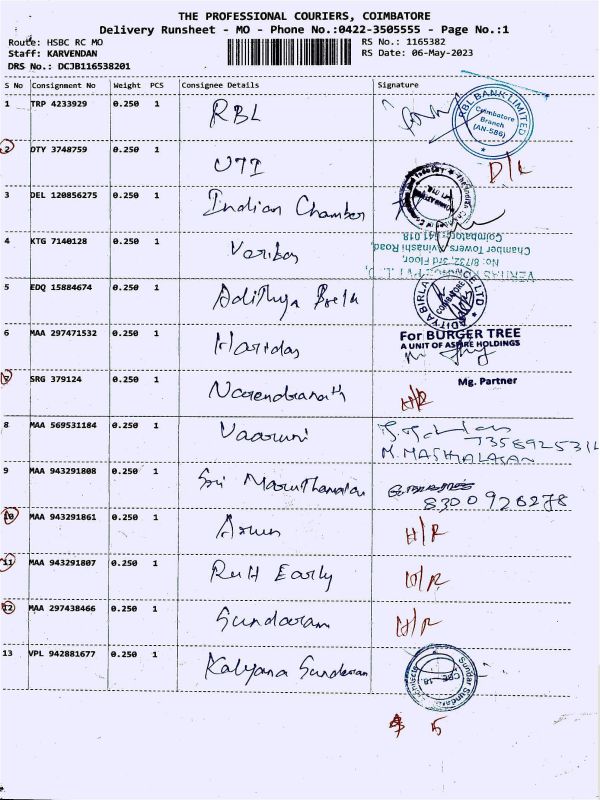 THE PROFESSIONAL COURIERS, COIMBATORE
Delivery Runsheet - MO - Phone No.:0422-3505555 - Page No.:1
Route: HSBC RC MO
RS No.: 1165382
Staff: KARVENDAN
RS Date: 06-May-2023
DRS No.: DCJB116538201
S No Consignment No Weight PCS Consignee Details Signature
1 TRP 4233929 0.250 1 RBL
RBL BANK LIMITED
Coimbatore
Branch
(AN-586)
2 OTY 3748759 0.250 1 UTI D/L
3 DEL 120856275 0.250 1 Indian Chamber
4 KTG 7140128 0.250 1 Veritas
No: 8/732, 3rd Floor,
Chamber Towers, Avinashi Road,
Coimbatore - 641 018
5 EDQ 15884674 0.250 1 Adithya Birla
ADITYA BIRLA
COIMBATORE
6 MAA 297471532 0.250 1 Haridas
For BURGER TREE
A UNIT OF ASPIRE HOLDINGS
Mg. Partner
7 SRG 379124 0.250 1 Narendranath H/R
8 MAA 569531184 0.250 1 Vaaruni
7358925314
9 MAA 943291808 0.250 1 Sri Maruthamalai
8300926278
10 MAA 943291861 0.250 1 Arun H/R
11 MAA 943291807 0.250 1 Ruth Early H/R
12 MAA 297438466 0.250 1 Sundaram H/R
13 VPL 942881677 0.250 1 Kalyana Sundaram
Sundar Sundaram
CBE - 18
5